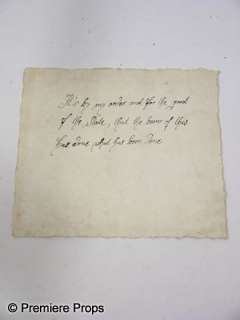 It is by my order and for the good
of the State, that the bearer of this
has done what has been done
© Premiere Props